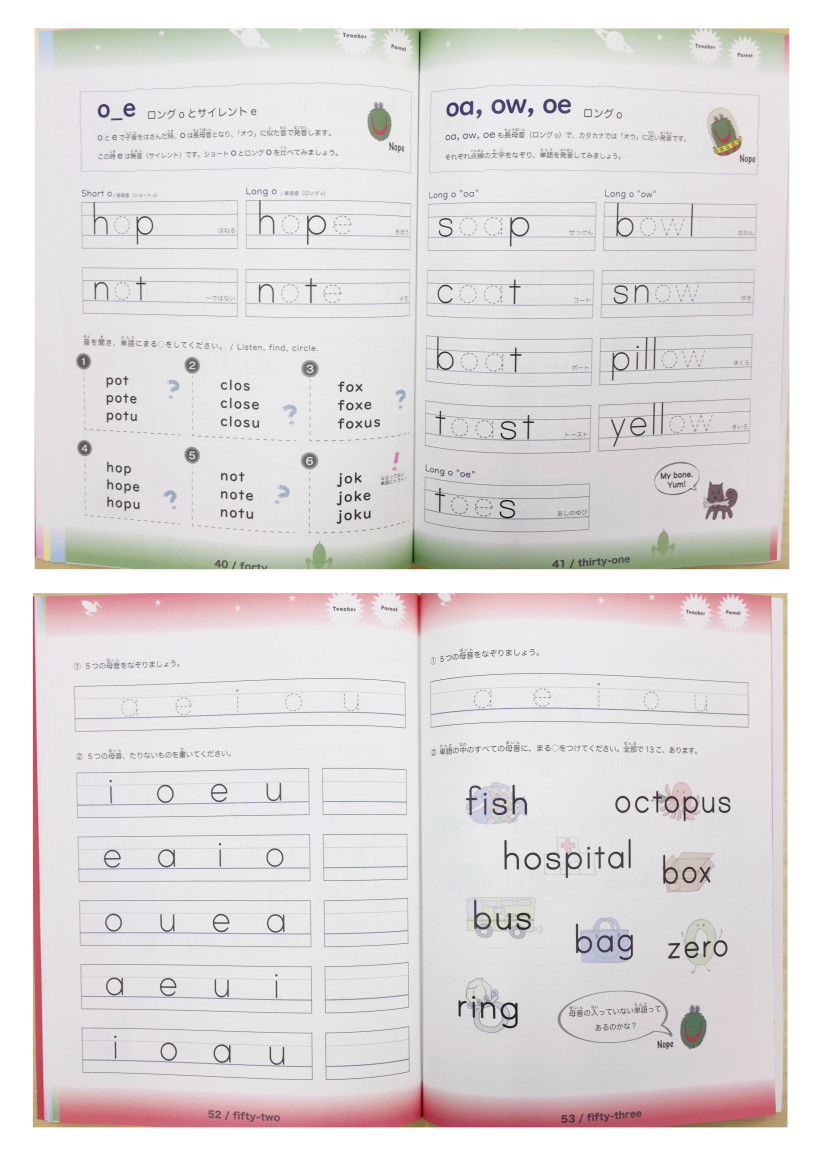 Teacher
Parent
o_e ロング o とサイレント e
o と e で子音をはさんだ時、o は長母音となり、「オウ」に似た音で発音します。
この時 e は無音（サイレント）です。ショート o とロング o を比べてみましょう。
Nope
Short o / 短母音（ショート o）
Long o / 長母音（ロング o）
hop はねる
hope きぼう
not ～ではない
note メモ
音を聞き、単語にまる○をしてください。 / Listen, find, circle.
1
pot
pote
potu
?
2
clos
close
closu
?
3
fox
foxe
foxus
?
4
hop
hope
hopu
?
5
not
note
notu
?
6
jok
joke
joku
!
40 / forty
Teacher
Parent
oa, ow, oe ロング o
oa, ow, oe も長母音（ロング o）で、カタカナでは「オウ」に近い発音です。
それぞれ点線の文字をなぞり、単語を発音してみましょう。
Nope
Long o "oa"
Long o "ow"
soap せっけん
bowl おわん
coat コート
snow ゆき
boat ボート
pillow まくら
toast トースト
yellow きいろ
Long o "oe"
toes あしのゆび
My bone.
Yum!
41 / thirty-one
Teacher
Parent
① 5つの母音をなぞりましょう。
a e i o u
② 5つの母音、たりないものを書いてください。
i o e u
e a i o
o u e a
a e u i
i o a u
52 / fifty-two
Teacher
Parent
① 5つの母音をなぞりましょう。
a e i o u
② 単語の中のすべての母音に、まる○をつけてください。全部で 13 こ、あります。
fish
octopus
hospital
box
bus
bag
zero
ring
母音の入っていない単語って
あるのかな？
Nope
53 / fifty-three